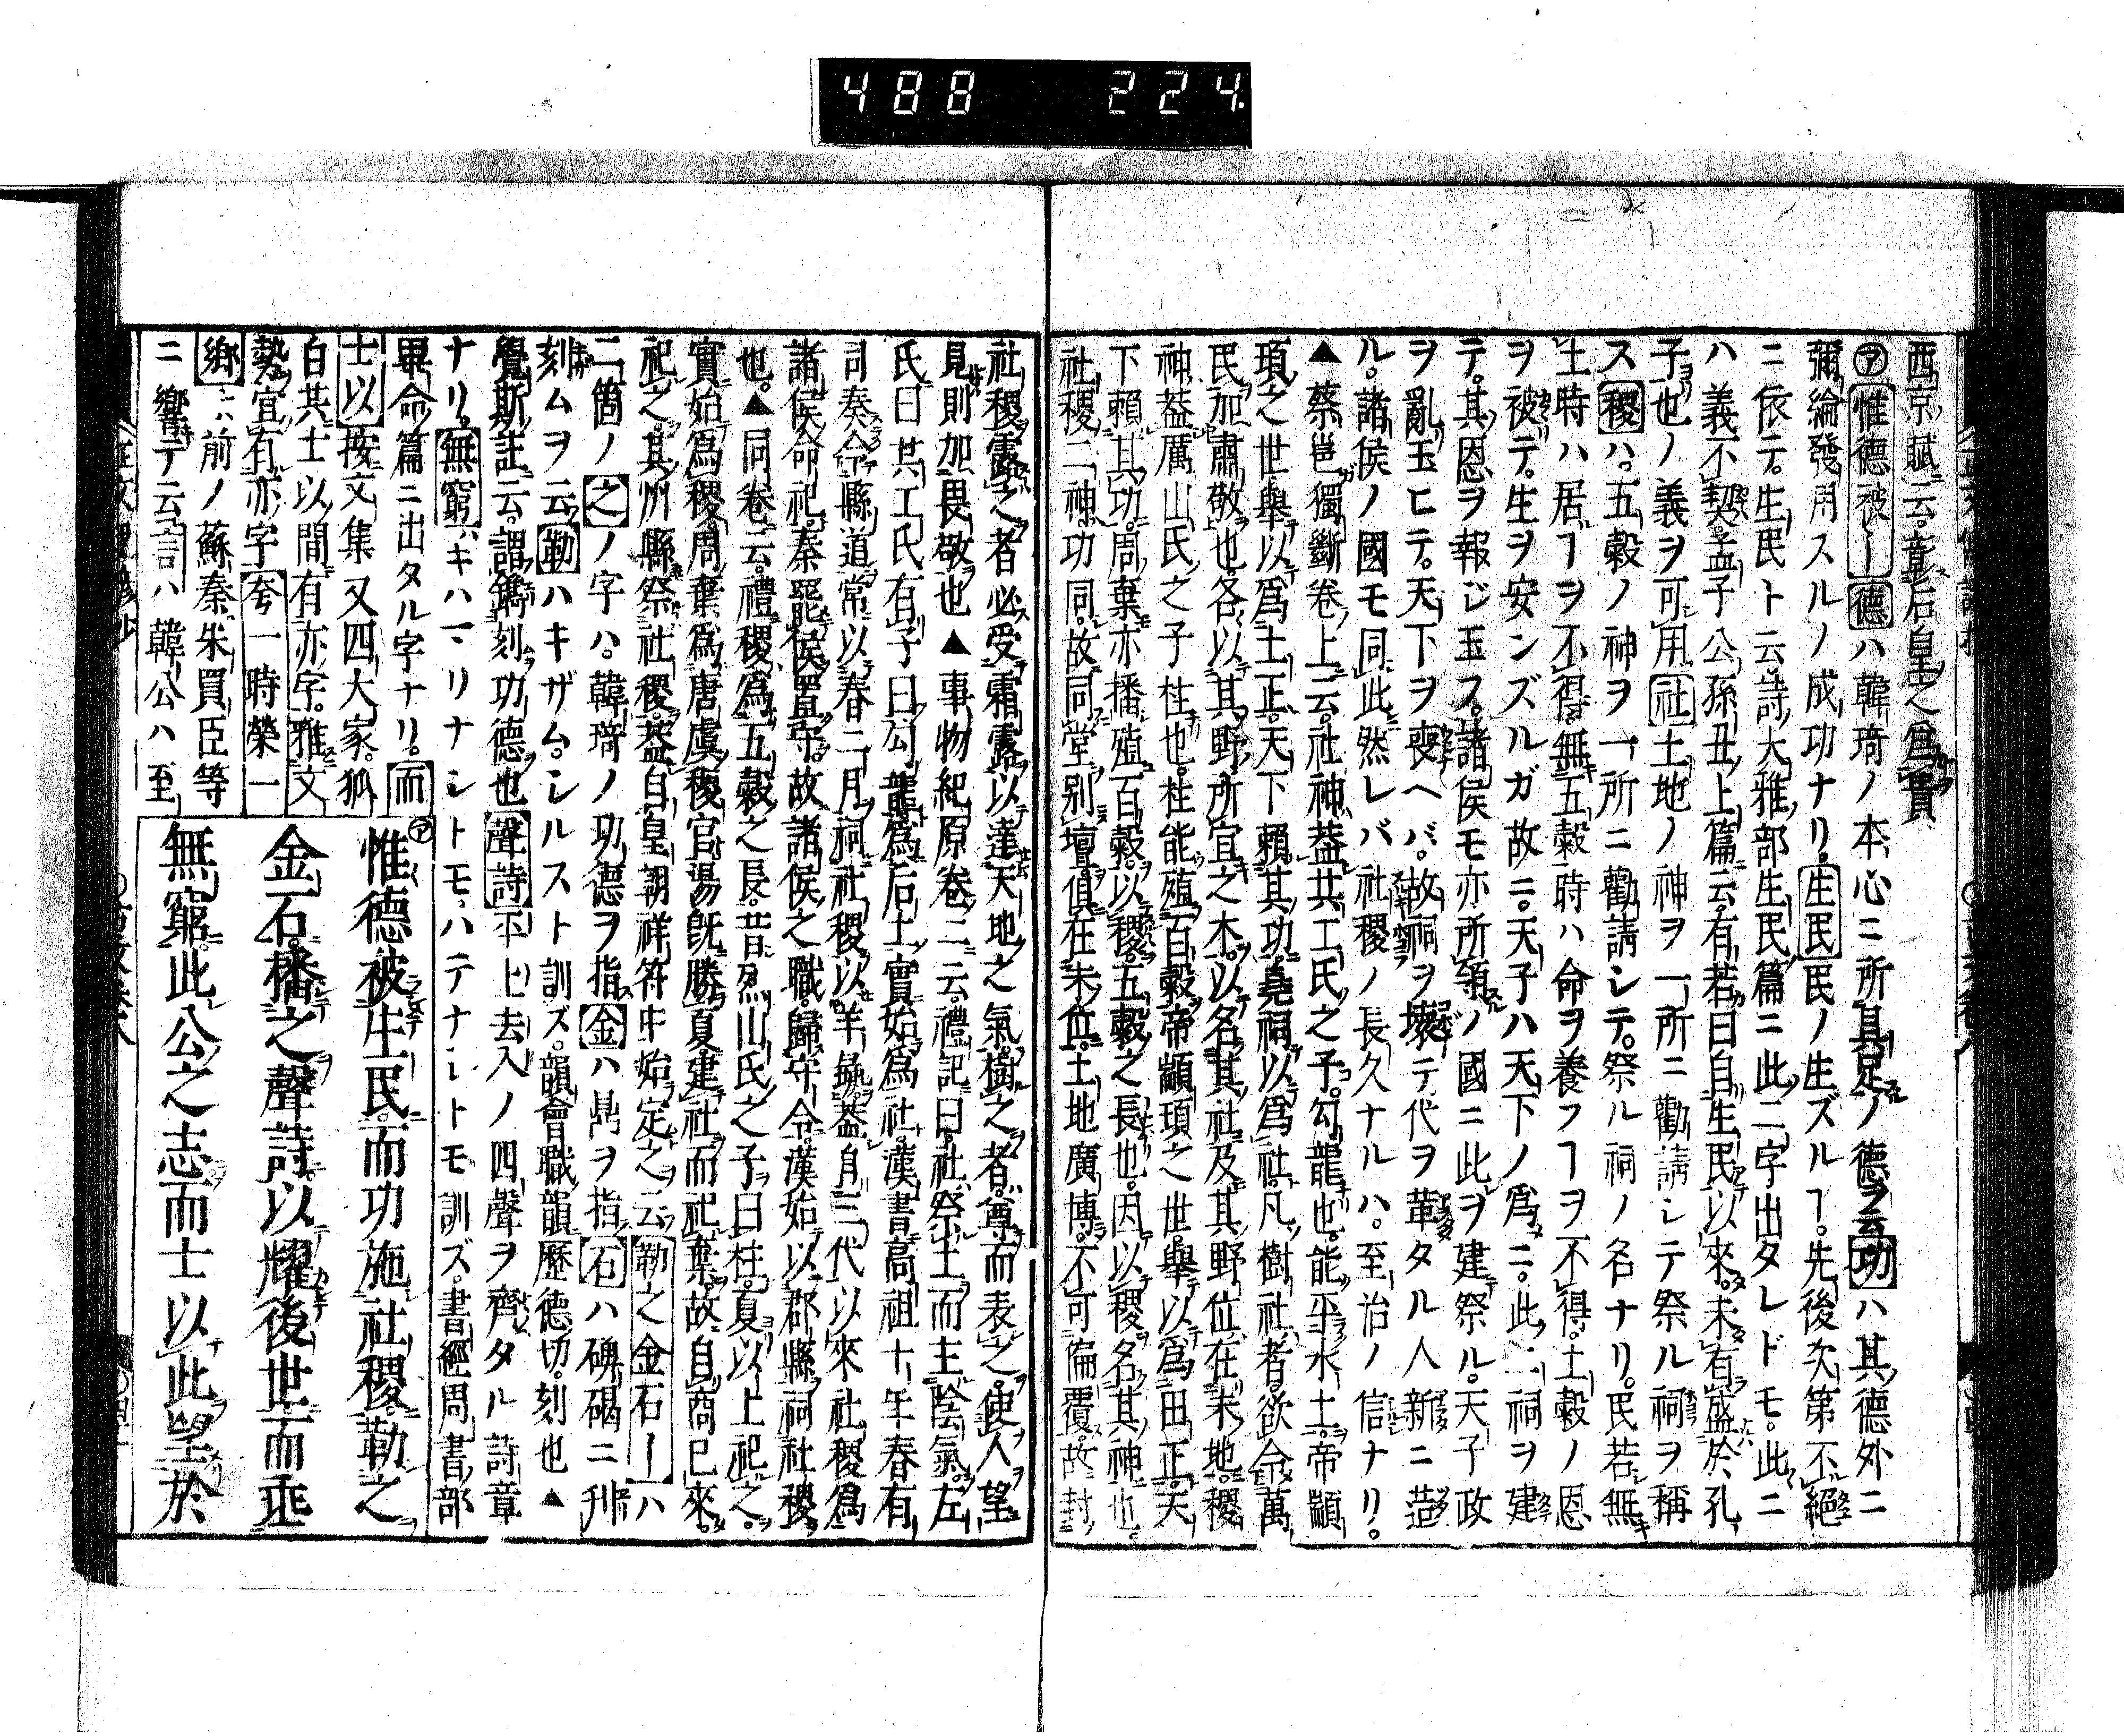 488 224
西京賦云彰后皇之爲貴
㋐惟德被ー德ハ韓琦ノ本心ニ所具足ノ德ヲ云功ハ其德外ニ
彌綸發用スルノ成功ナリ。生民民ノ生ズルヿ。先後次第不絕
ニ依テ。生民ト云詩大雅部生民篇ニ此二字出タレドモ。此ニ
ハ義不契。孟子公孫丑上篇云有若曰自生民以來。未有盛於孔
子也ノ義ヲ可用社土地ノ神ヲ一所ニ勸請シテ祭ル祠ヲ稱
ス稷ハ。五穀ノ神ヲ一所ニ勸請シテ。祭ル祠ノ名ナリ。民若無
土時ハ居ヿヲ不得。無五穀時ハ命ヲ養フヿヲ不得。土穀ノ恩
ヲ被テ。生ヲ安ンズルガ故ニ。天子ハ天下ノ爲ニ。此二祠ヲ建
テ。其恩ヲ報ジ玉フ。諸侯モ亦所領ノ國ニ此ヲ建祭ル。天子政
ヲ亂玉ヒテ。天下ヲ喪ヘバ。故祠ヲ壞テ代ヲ革タル人新ニ造
ル。諸侯ノ國モ同此然レバ社稷ノ長久ナルハ。至治ノ信ナリ。
▲蔡邕獨斷卷上云。社神蓋共工氏之子。勾龍也。能平水土。帝顓
頊之世擧以爲土正。天下賴其功。堯祠以爲社。凡樹社者。欲令萬
民加肅敬也。各以其野所宜之木。以名其社及其野位在未地。稷
神蓋厲山氏之子柱也。柱能殖百穀。帝顓頊之世。擧以爲田正。天
下賴其功。周棄亦播殖百穀。以稷。五穀之長也。因以稷名其神也。
社稷二神。功同。故同堂別壇。俱在未位。土地廣博。不可偏覆。故封
社稷露之者必受霜露以達天地之氣。樹之者。尊而表之。使人望
見則加畏敬也▲事物紀原卷二云。禮記曰。社祭土而主陰氣。左
氏曰共工氏有子曰勾龍爲后土。實始爲社。漢書高祖十年春有
司奏令縣道常以春二月祠社稷以羊彘蓋自三代以來社稷爲
諸侯命祀。秦罷侯置守。故諸侯之職。歸守令。漢始以郡縣祠社稷。
也。▲同卷云。禮稷爲五穀之長。昔烈山氏之子曰柱。夏以上祀之。
實始爲稷周棄爲唐虞稷官湯旣勝夏建社而祀棄。故自商已來。
祀之。其州縣祭社稷。蓋自皇朝祥符中始定之云勒之金石ーハ
二箇ノ之ノ字ハ。韓琦ノ功德ヲ指金ハ鼎ヲ指石ハ碑碣ニ刋
刻ムヲ云勒ハキザム。シルスト訓ズ。韻會職韻歷德切。刻也▲
覺斯註云。謂鐫刻功德也聲詩平上去入ノ四聲ヲ齊タル詩章
ナリ。無窮ハキハマリナシトモ、ハテナシトモ訓ズ。書經周書部
畢命篇ニ出タル字ナリ。而
士以按文集又四大家。狐
白其士以間有亦字。雅文
勢宜有亦字夸一時榮一
鄉ニハ前ノ蘇秦朱買臣等
ニ嚮テ云言ハ韓公ハ至
㋐惟德被生民。而功施社稷。勒之
金石。播之聲詩。以耀後世。而垂
無窮。此公之志。而士以此望於